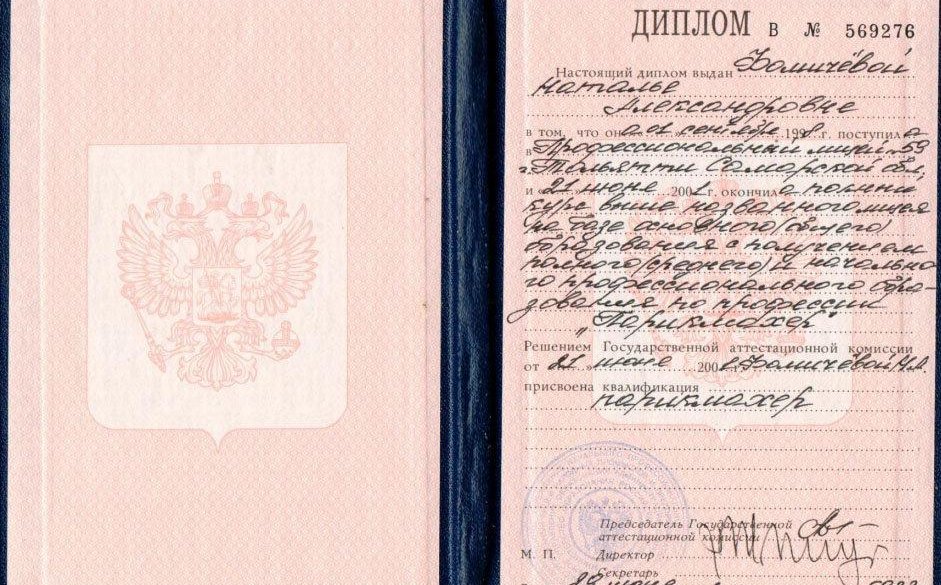 ДИПЛОМ В № 569276
Настоящий диплом выдан Фомичёвой
Наталье
Александровне
в том, что она „01 сентября 1998 г. поступила
в Профессиональный лицей №59
г. Тольятти Самарской обл,
и „21 июня 2001 г. окончила полный
курс выше названного лицея
на базе основного (общего)
образования с получением
полного (среднего) и начально-
го профессионального обра-
зования по профессии
„Парикмахер"
Решением Государственной аттестационной комиссии
от „21 „ июня 2001 г. Фомичёвой Н.А.
присвоена квалификация
парикмахер
Председатель Государственной
аттестационной комиссии
М. П. Директор
Секретарь